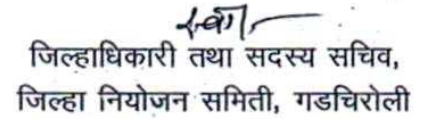 जिल्हाधिकारी तथा सदस्य सचिव,
जिल्हा नियोजन समिती, गडचिरोली